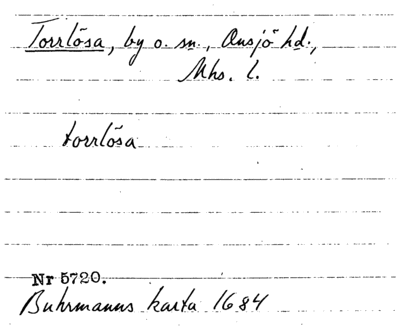 Torrlösa, by o. sn., Onsjö hd.,
Mhs. l.
torrlösa
Nr 5720.
Buhrmanns karta 1684